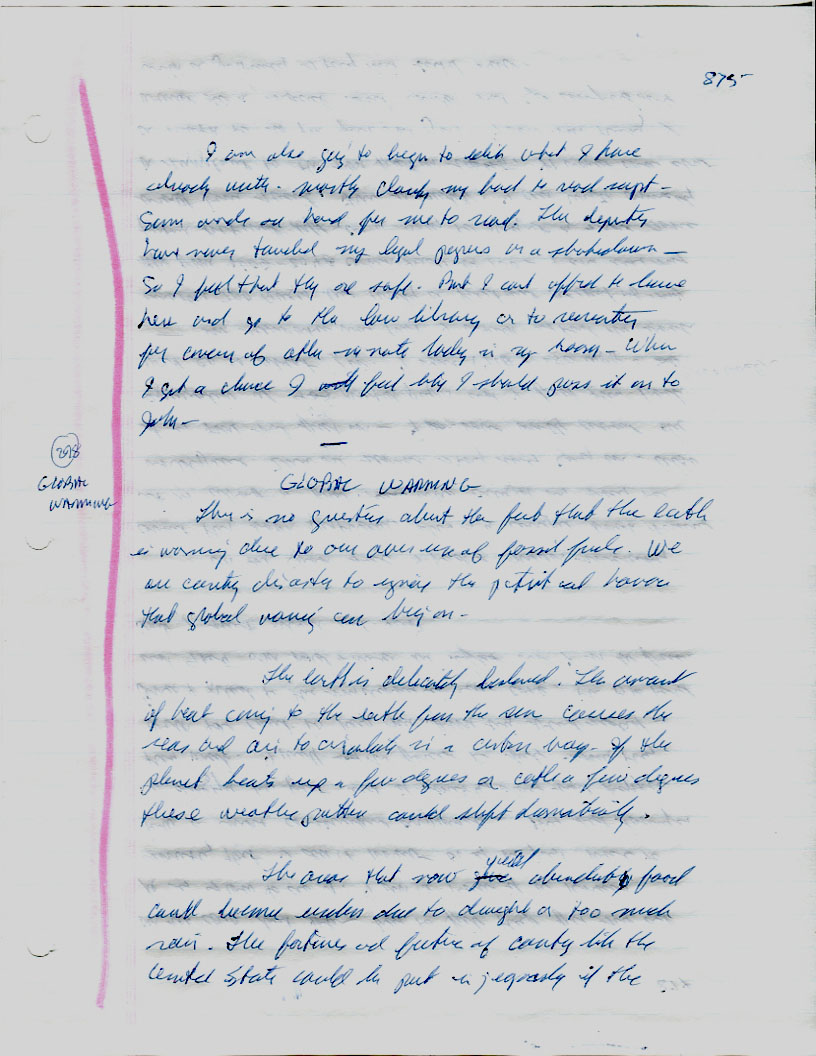 875
I am also going to begin to edit what I have
already written - mostly clarify my hard to read script -
Some words are hard for me to read. The deputies
have never touched my legal papers in a shakedown -
So I feel that they are safe. But I can't afford to leave
here and go to the law library or to recreation
for fear of other inmate looking in my room - When
I get a chance I feel like I should pass it on to
John -
298
GLOBAL
WARMING
GLOBAL WARMING
There is no question about the fact that the earth
is warming due to our over use of fossil fuels. We
are courting disaster to ignore the potential havoc
that global warming can bring on -
The earth is delicately balanced. The amount
of heat coming to the earth from the sun causes the
seas and air to circulate in a certain way. If the
planet heats up a few degrees or cools a few degrees
these weather pattern could shift dramatically.
The areas that now yield abundant food
could become useless due to drought or too much
rain. The fortunes and future of country like the
United States could be put in jeopardy if the